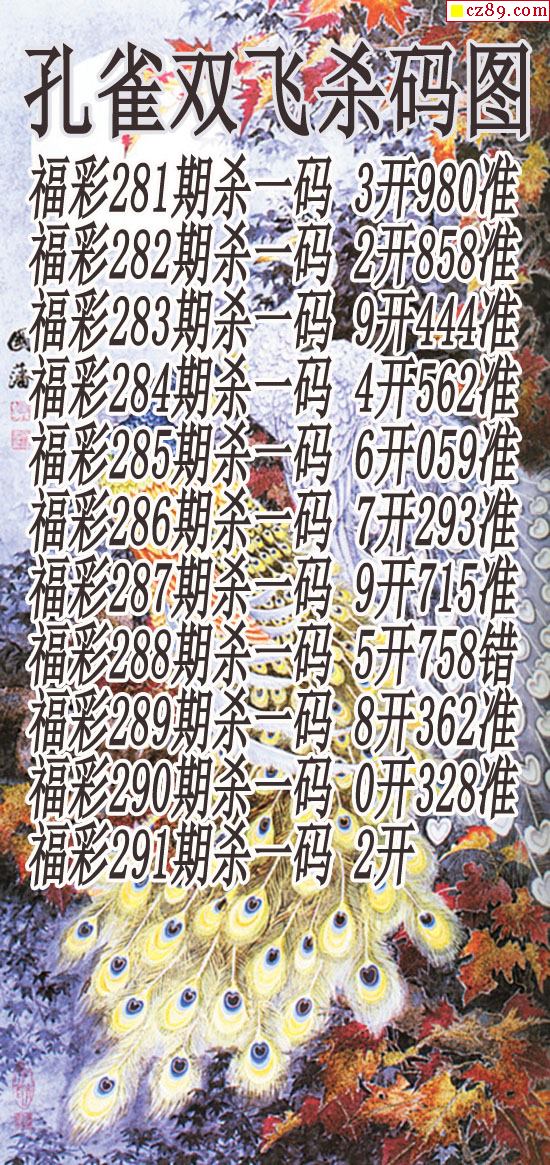 cz89.com
孔雀双飞杀码图
福彩281期杀一码 3开980准
福彩282期杀一码 2开858准
福彩283期杀一码 9开444准
福彩284期杀一码 4开562准
福彩285期杀一码 6开059准
福彩286期杀一码 7开293准
福彩287期杀一码 9开715准
福彩288期杀一码 5开758错
福彩289期杀一码 8开362准
福彩290期杀一码 0开328准
福彩291期杀一码 2开